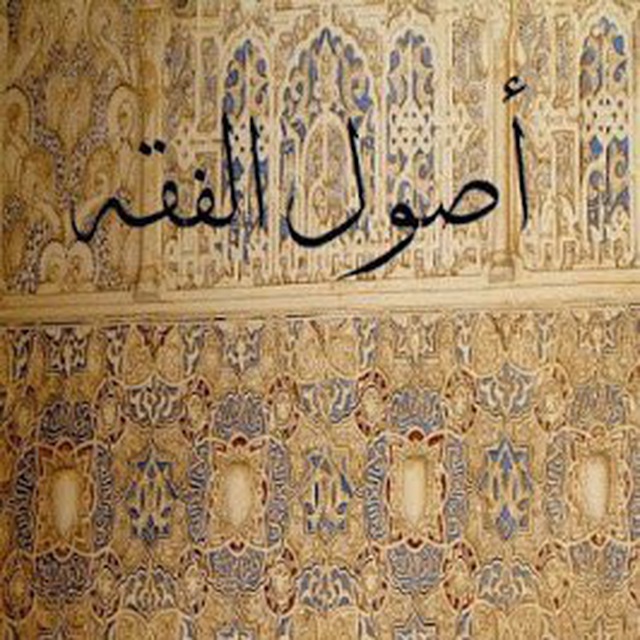 أصول الفقه